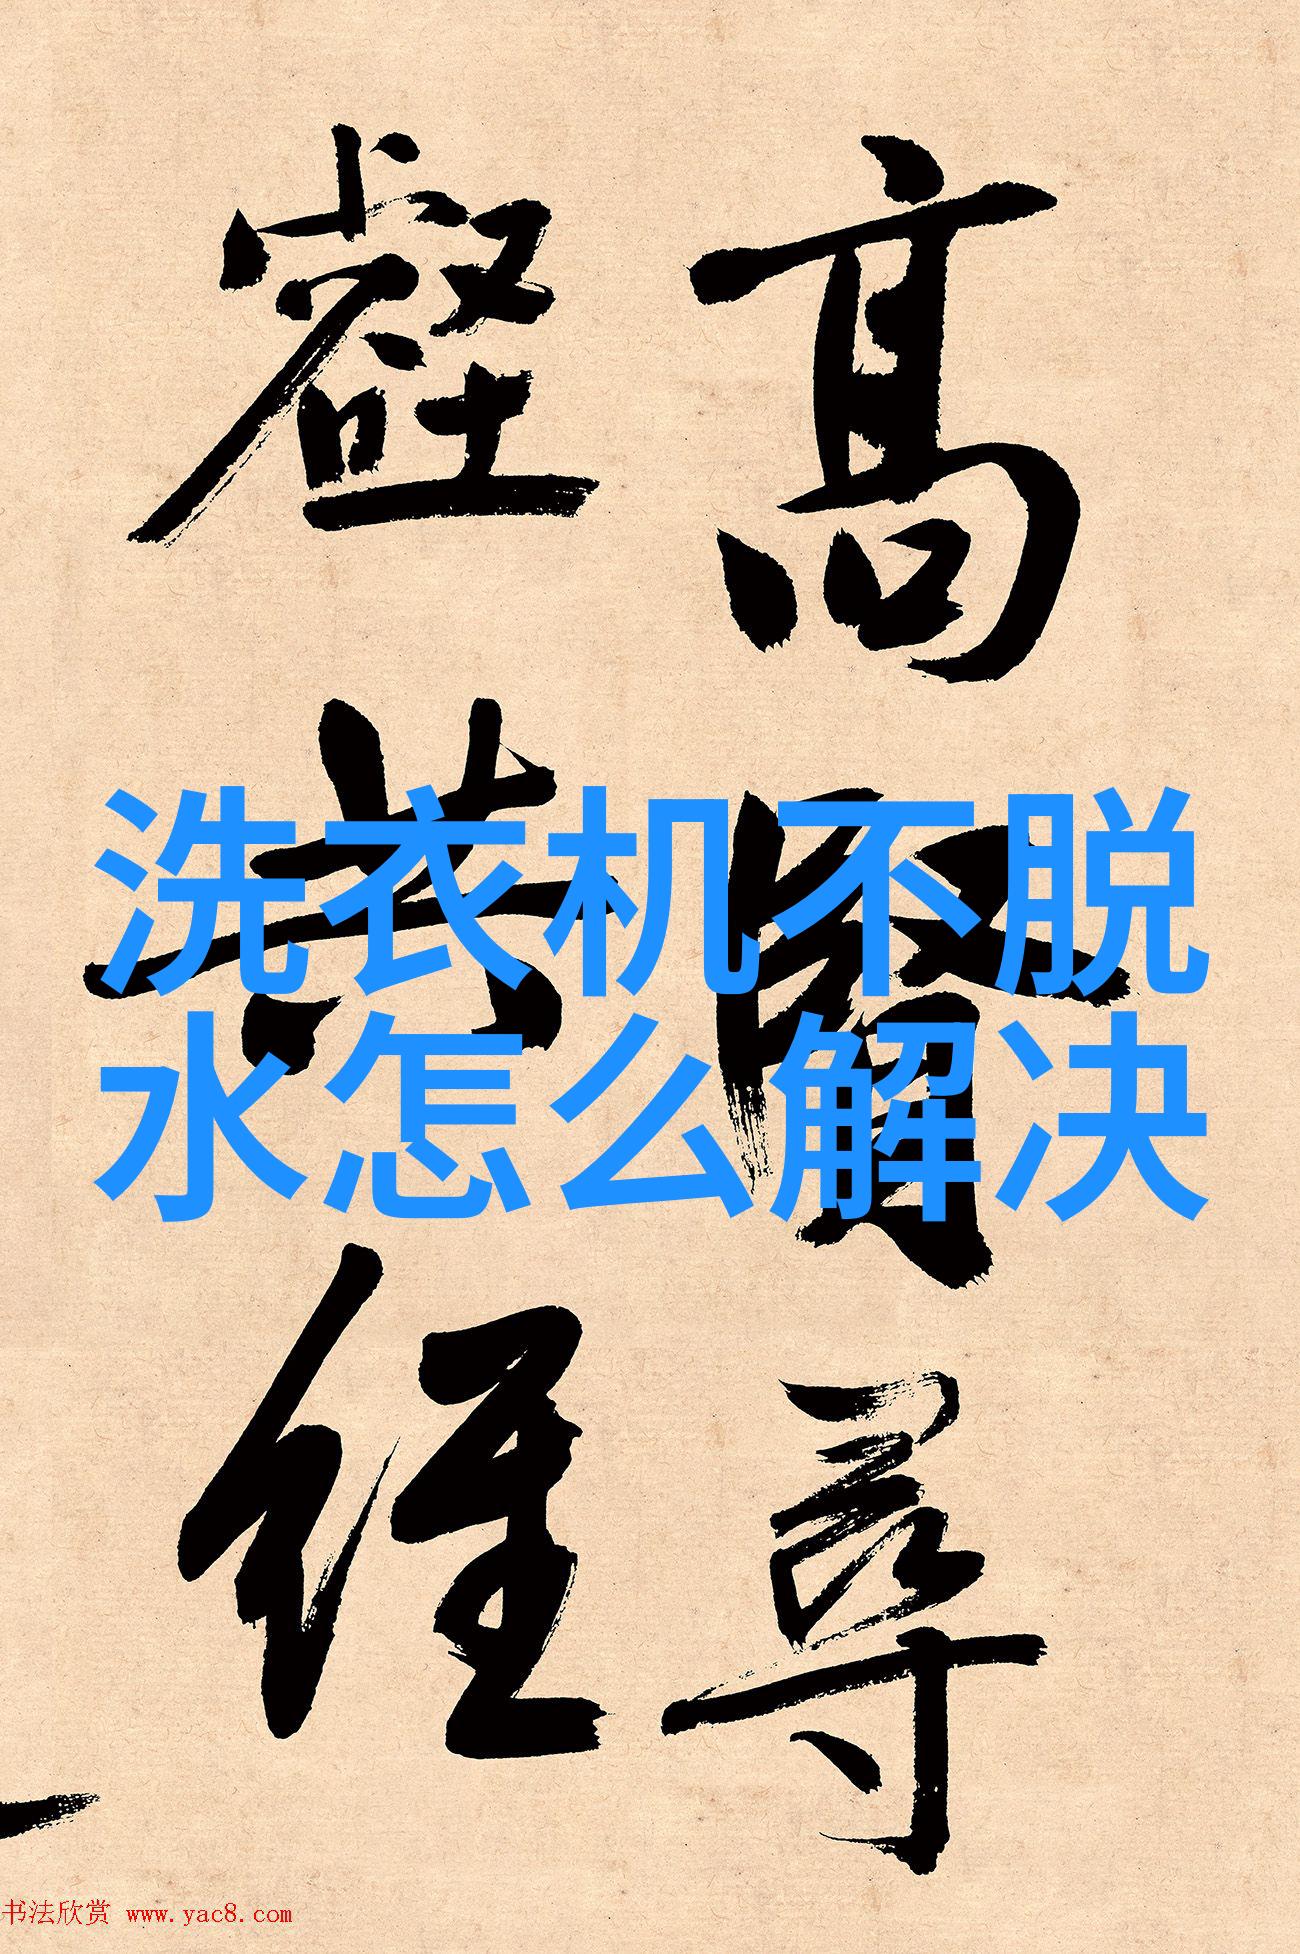 高賢尋
壑共經
洗衣机不脱
水怎么解决
书法欣赏 www.yac8.com